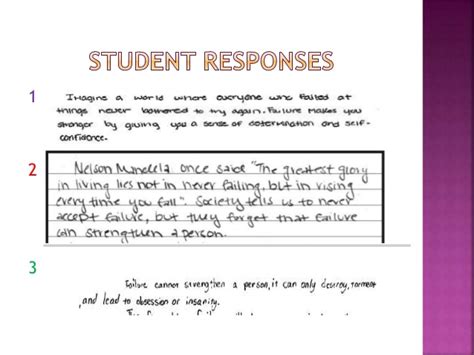 STUDENT RESPONSES
1
Imagine a world where everyone who failed at
things never bothered to try again. Failure makes you
stronger by giving you a sense of determination and self-
confidence.
2
Nelson Mandela once said "The greatest glory
in living lies not in never failing, but in rising
every time you fall". Society tells us to never
accept failure, but they forget that failure
can strengthen a person.
3
Failure cannot strengthen a person, it can only destroy, torment
,and lead to obsession or insanity.